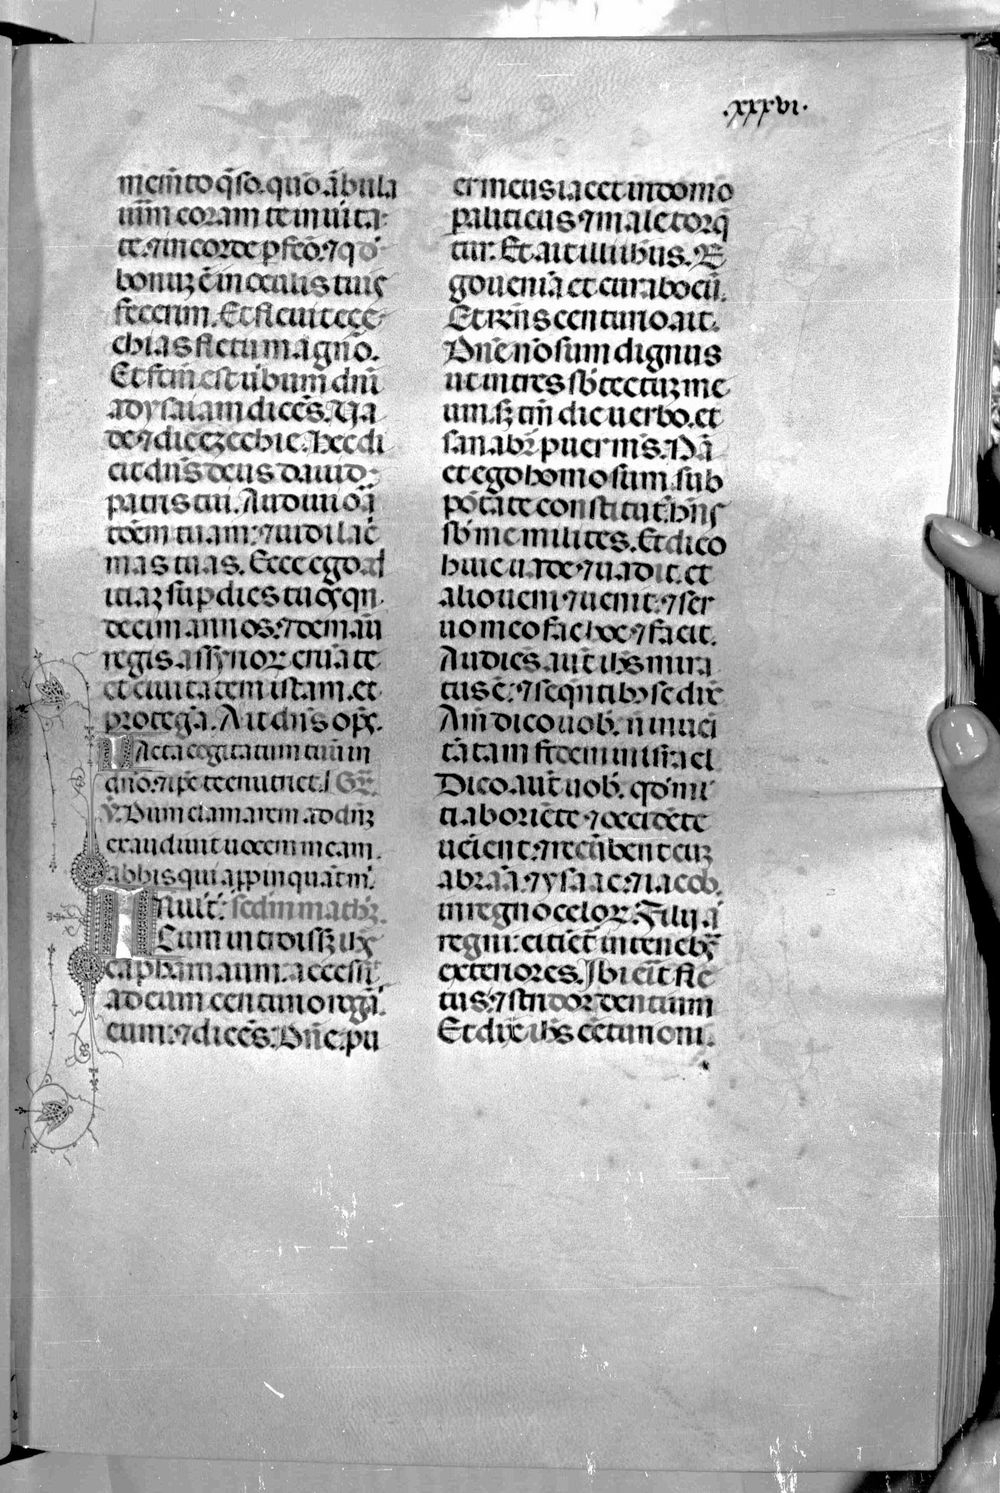 .xxxvi.
mem̄to q̄so. quō ābula
uīm coram te in uita
te. ⁊ in corde ꝑfcō. ⁊ qd̓
bonuꝫ ē in oculis tuis
fecerim. Et fleuit eçe
chias fletu magno.
Et fcm̄ est ūbum dnī
ad ysaiam dicēs. Ua
de ⁊ dic eçechie. Hec di
cit dn̄s deus dauid
patris tui. Audiui oꝛ̄a
toēm tuam: ⁊ uidi lac̓
mas tuas. Ecce ego ad
iciaꝫ suꝑ dies tuos qn̄
decim annos: ⁊ de manū
regis assyrioꝝ eruā te
et ciuitatem istam. et
protegā. Ait dn̄s opс̄.
Iacta cogitatum tuū in
dn̄o: ⁊ ip̄e te enutriet. GR̄.
V̄. Dum clamarem ad dn̄ꝫ
exaudiuit uocem meam.
ab his qui appinquāt m̄.
In illī t̄. scdm matħꝫ.
Cum introissꝫ ih̄c
capharnaum: accessit
ad eum centurio rogā
eum: ⁊ dicēs. Dn̄e. pu
er meus iacet in domo
paliticus ⁊ male torq̄
tur. Et ait illi ih̄us. E
go ueniā et curabo eū.
Et rn̄s centurio ait.
Dn̄e nō sum dignus
ut intres sb̄ tectuꝫ me
um. sꝫ tm̄ dic uerbo. et
sanabr̄ puer ms̄. Nā
et ego homo sum sub
pōtate constitut̓. hn̄s
sb̄ me milites. Et dico
huic uade ⁊ uadit. et
alio ueni ⁊ uenit. ⁊ ser
uo meo fac hoc ⁊ facit.
Audiēs aut̄ ih̄s mira
tus ē: ⁊ seqn̄tibꝫ se dix̄
Am̄ dico uob̄. n̄ inuei
tātam fidem in isrl̄ael
Dico aut̄ uob̄. qd̓ ml̓
ti ab oriēte ⁊ occidēte
ueient: ⁊ recūbent cuꝫ
abraā. ⁊ ysaac: ⁊ iacob.
in regno celoꝝ. Filij ā
regni: eiciēt̄ in tenebꝫ
exteriores. Ibi erit fle
tus: ⁊ stridor dentium
Et dix̄ ih̄s cēturioni.